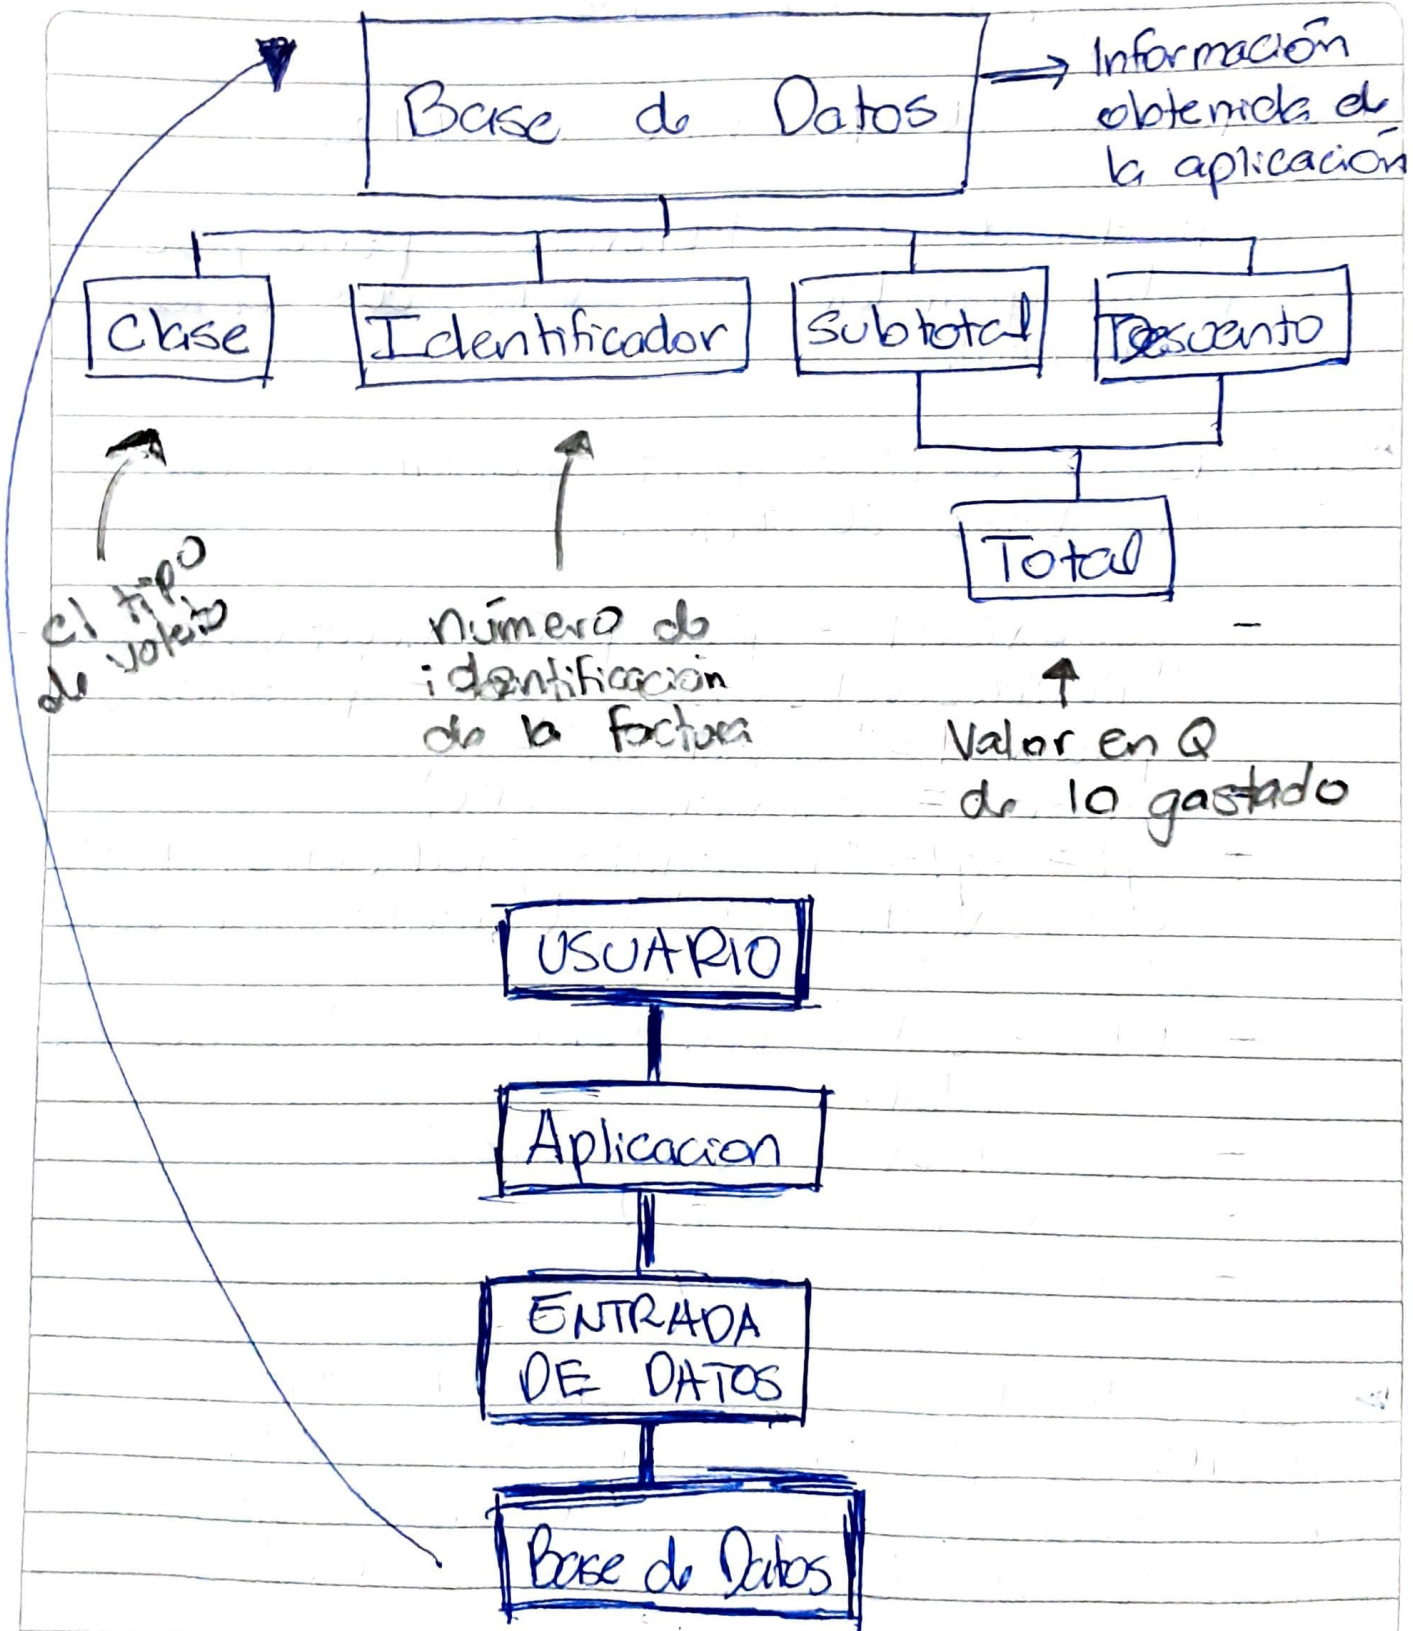 Base de Datos
Información
obtenida de
la aplicación
Clase
Identificador
Subtotal
Descuento
Total
el tipo
de
número de
identificación
de la factura
Valor en Q
de lo gastado
USUARIO
Aplicacion
ENTRADA
DE DATOS
Base de Datos